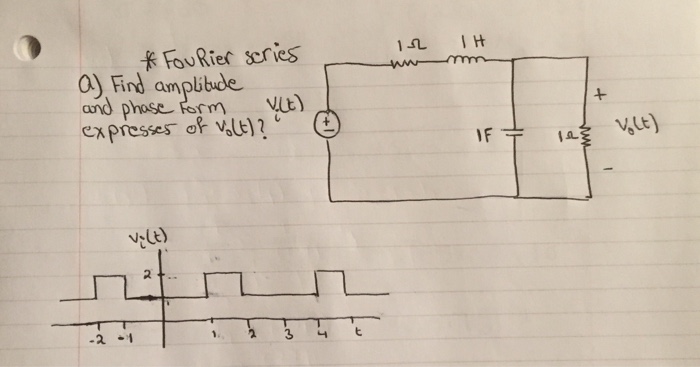 * FouRier series
a) Find amplitude
and phase form
expresses of Vo(t)?
Vi(t)
+
-
1Ω
1H
1F
1Ω
+
Vo(t)
-
Vi(t)
2
-2 -1 1 2 3 4 t